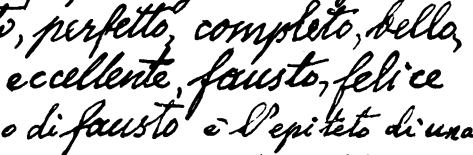 perfetto, completo, bello,
eccellente, fausto, felice
o di fausto è l'epiteto di una